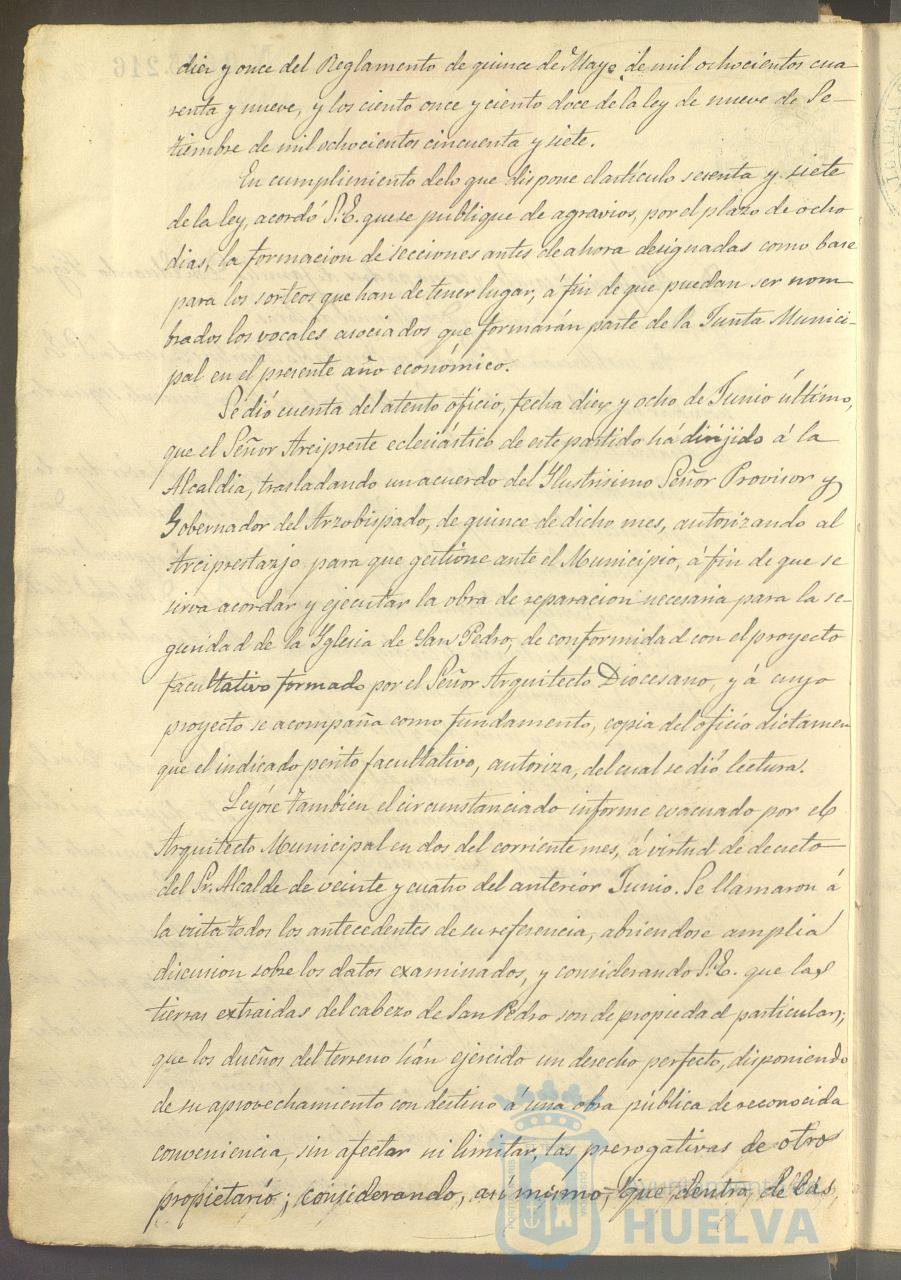 diez y once del Reglamento de quince de Mayo de mil ochocientos cua
renta y nueve, y los ciento once y ciento doce de la ley de nueve de Se-
tiembre de mil ochocientos cincuenta y siete.
En cumplimiento de lo que dispone el artículo sesenta y siete
de la ley, acordó S.E. que se publique de agravios, por el plazo de ocho
dias, la formacion de secciones antes de ahora designadas como base
para los sorteos que han de tener lugar, á fin de que puedan ser nom
brados los vocales asociados que formarán parte de la Junta Munici-
pal en el presente año económico.
Se dió cuenta del atento oficio, fecha diez y ocho de Junio último,
que el Señor Arcipreste eclesiástico de este partido há dirijido á la
Alcaldia, trasladando un acuerdo del Ilustrisimo Señor Provisor y
Gobernador del Arzobispado, de quince de dicho mes, autorizando al
Arciprestazjo para que gestione ante el Municipio, á fin de que se
sirva acordar y ejecutar la obra de reparacion necesaria para la se-
guridad de la Iglesia de San Pedro, de conformidad con el proyecto
facultativo formado por el Señor Arquitecto Diocesano, y á cuyo
proyecto se acompaña como fundamento, copia del oficio dictamen
que el indicado perito facultativo, autoriza, del cual se dió lectura.
Leyóse tambien el circunstanciado informe evacuado por el
Arquitecto Municipal en dos del corriente mes, á virtud de decreto
del Sr. Alcalde de veinte y cuatro del anterior Junio. Se llamaron á
la vista todos los antecedentes de su referencia, abriendose amplia
discusion sobre los datos examinados, y considerando S.E. que las
tierras extraidas del cabezo de San Pedro son de propiedad particular;
que los dueños del terreno hán ejercido un derecho perfecto, disponiendo
de su aprovechamiento con destino á una obra pública de reconocida
conveniencia, sin afectar ni limitar, las prerogativas de otro
propietario; considerando, asi mismo, que dentro de las
Ayuntamiento de
HUELVA